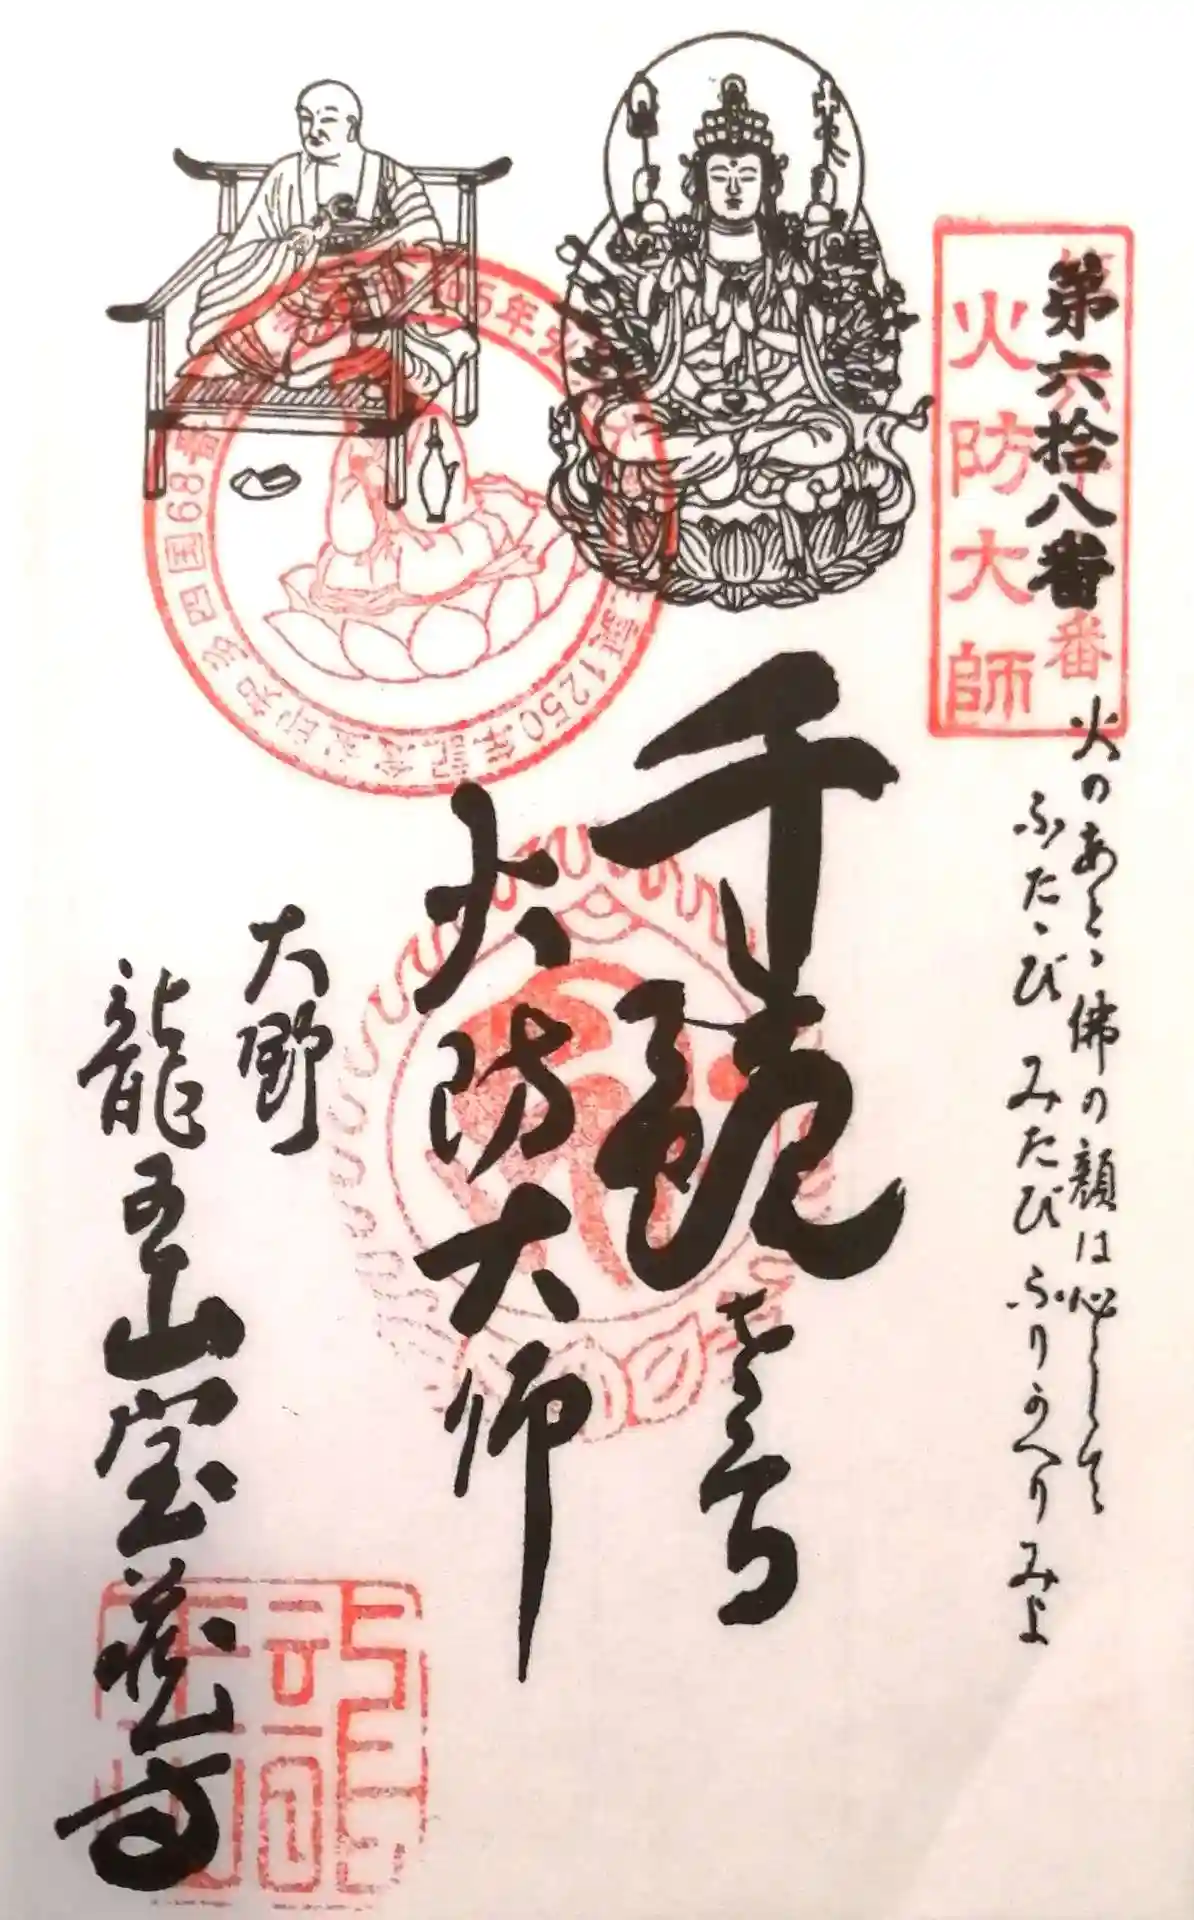 第六拾八番
火防大師
火のあとゝ佛の顔は心して
ふたゝびみたびふりかへりみよ
千観音
火防大師
大野
龍王山宝蔵寺
知多四国68番
誕1250年記念宝印